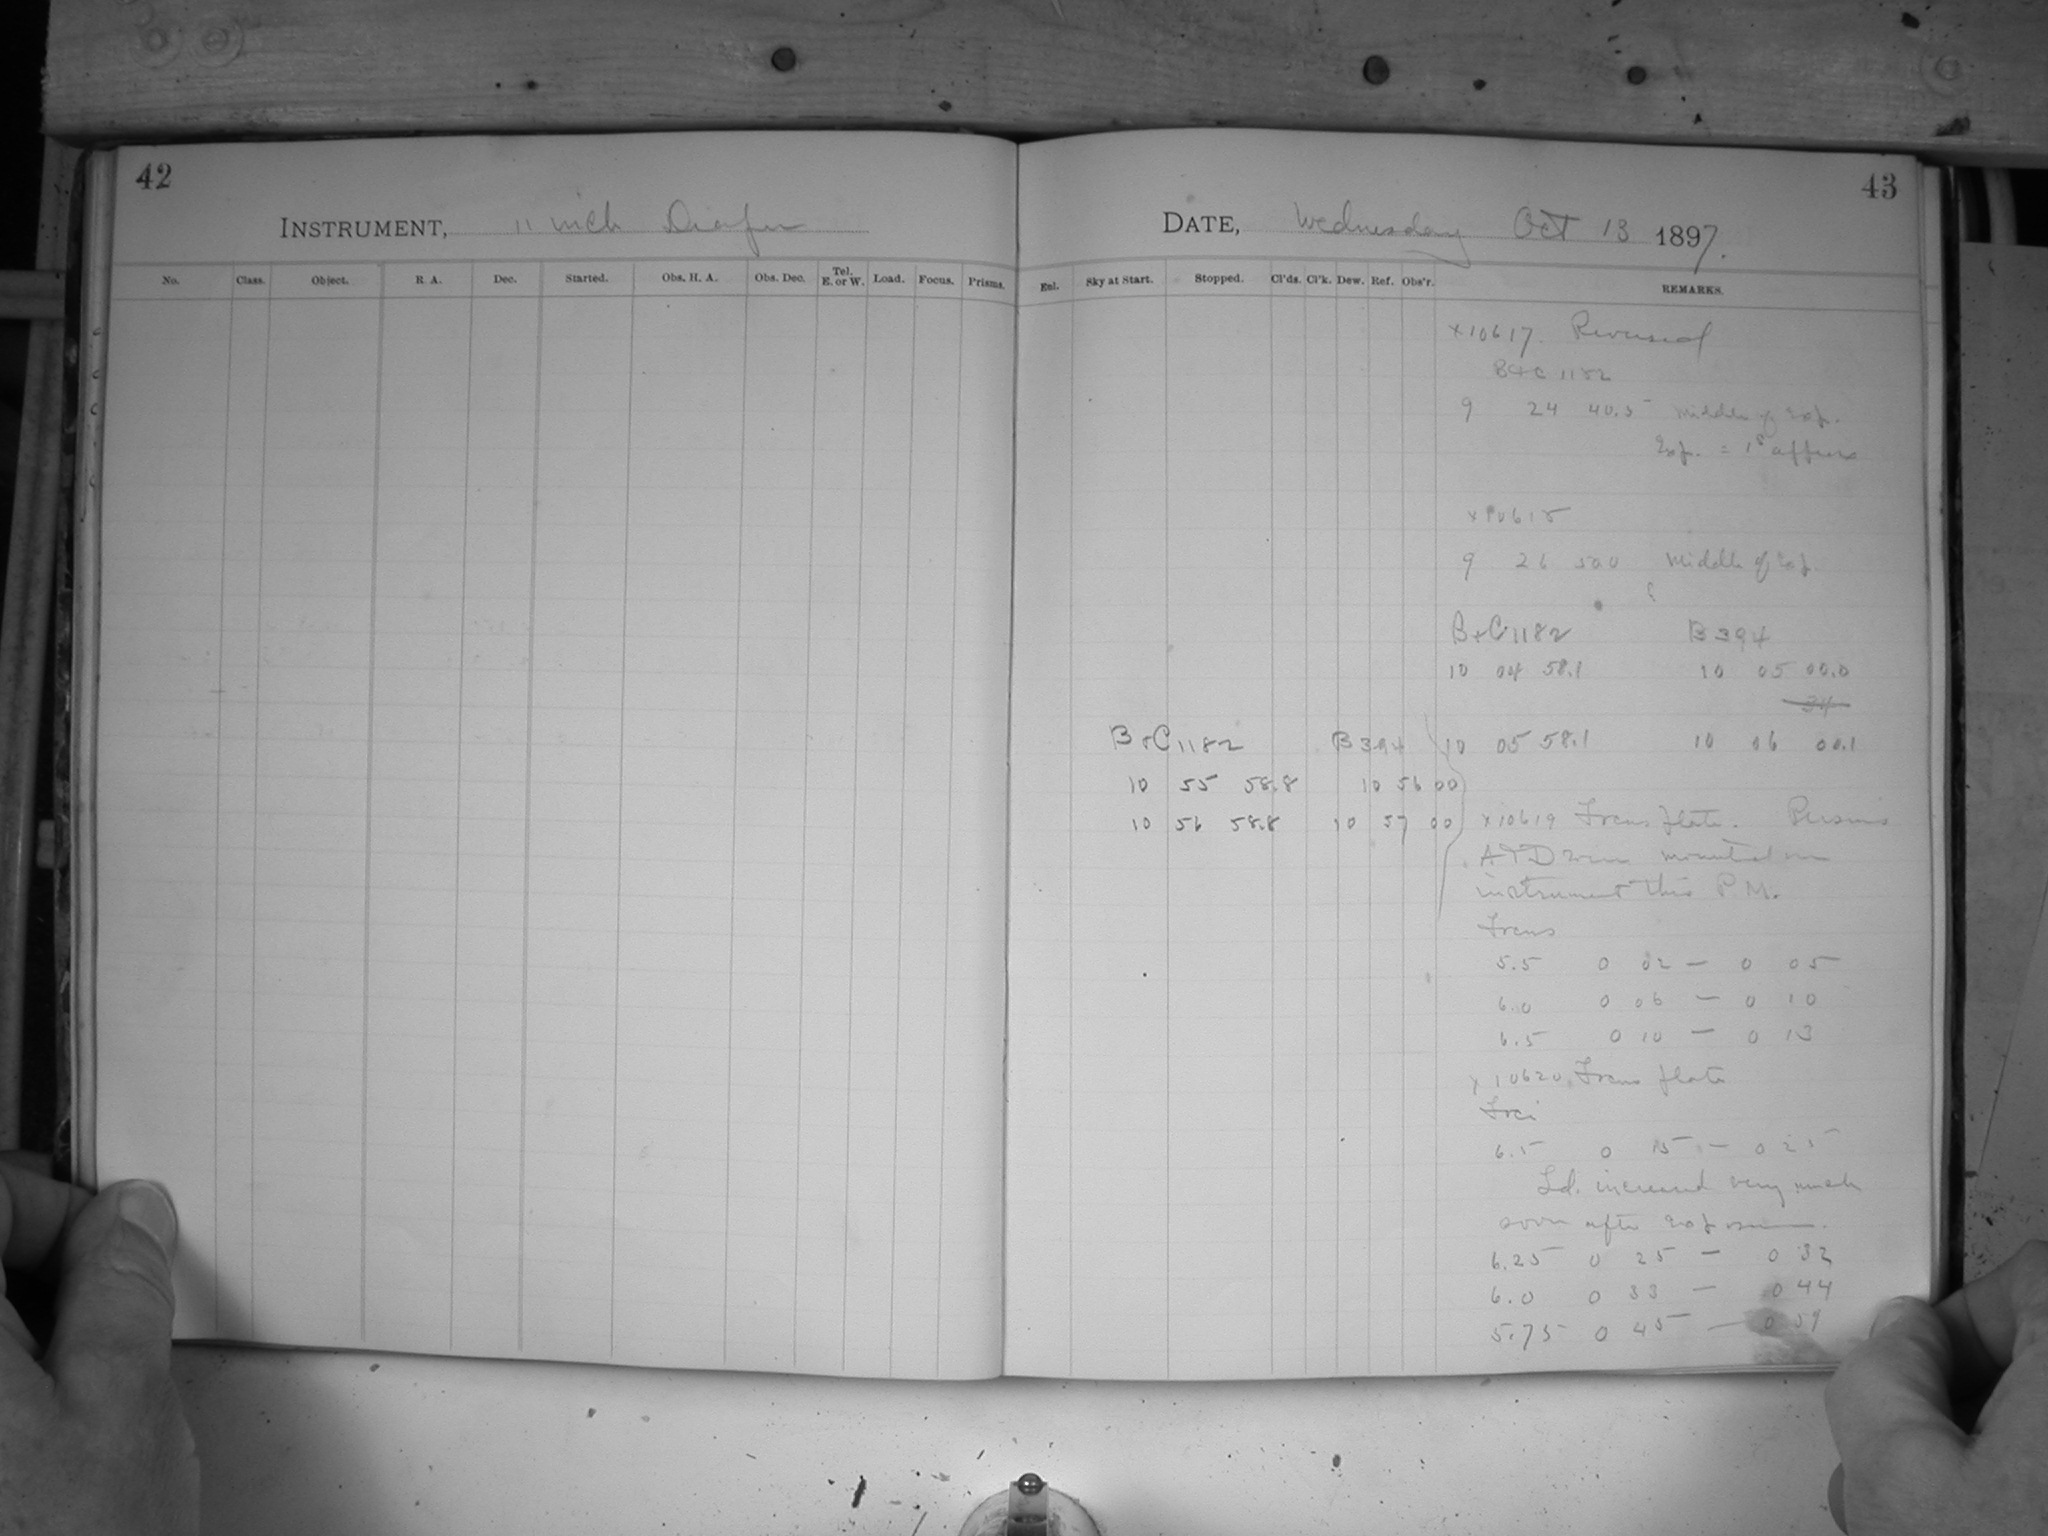 42
INSTRUMENT, 11 inch Draper
No. Class. Object. R. A. Dec. Started. Obs. H. A. Obs. Dec. Tel. E. or W. Load. Focus. Prisms.
43
DATE, Wednesday Oct 13 1897.
Enl. Sky at Start. Stopped. Cl'ds. Cl'k. Dew. Ref. Obs'r. REMARKS.
x10617. Reversed
B+C 1182
9 24 40.5 middle of Exp.
Exp. = 1s approx
9 26 50.0 Middle of Exp.
B+C 1182 B 394
10 04 58.1 10 05 00.0
34
B+C 1182 B 394 10 05 58.1 10 06 00.1
10 55 58.8 10 56 00
10 56 58.8 10 57 00 x10619 Focus plate. Prisms
A + D were mounted on
instrument this P.M.
Focus
5.5 0 02 — 0 05
6.0 0 06 — 0 10
6.5 0 10 — 0 13
x10620 Focus plate
Foci
6.5 0 15 — 0 25
Ld. increased very much
soon after exposure.
6.25 0 25 — 0 32
6.0 0 33 — 0 44
5.75 0 45 — 0 59